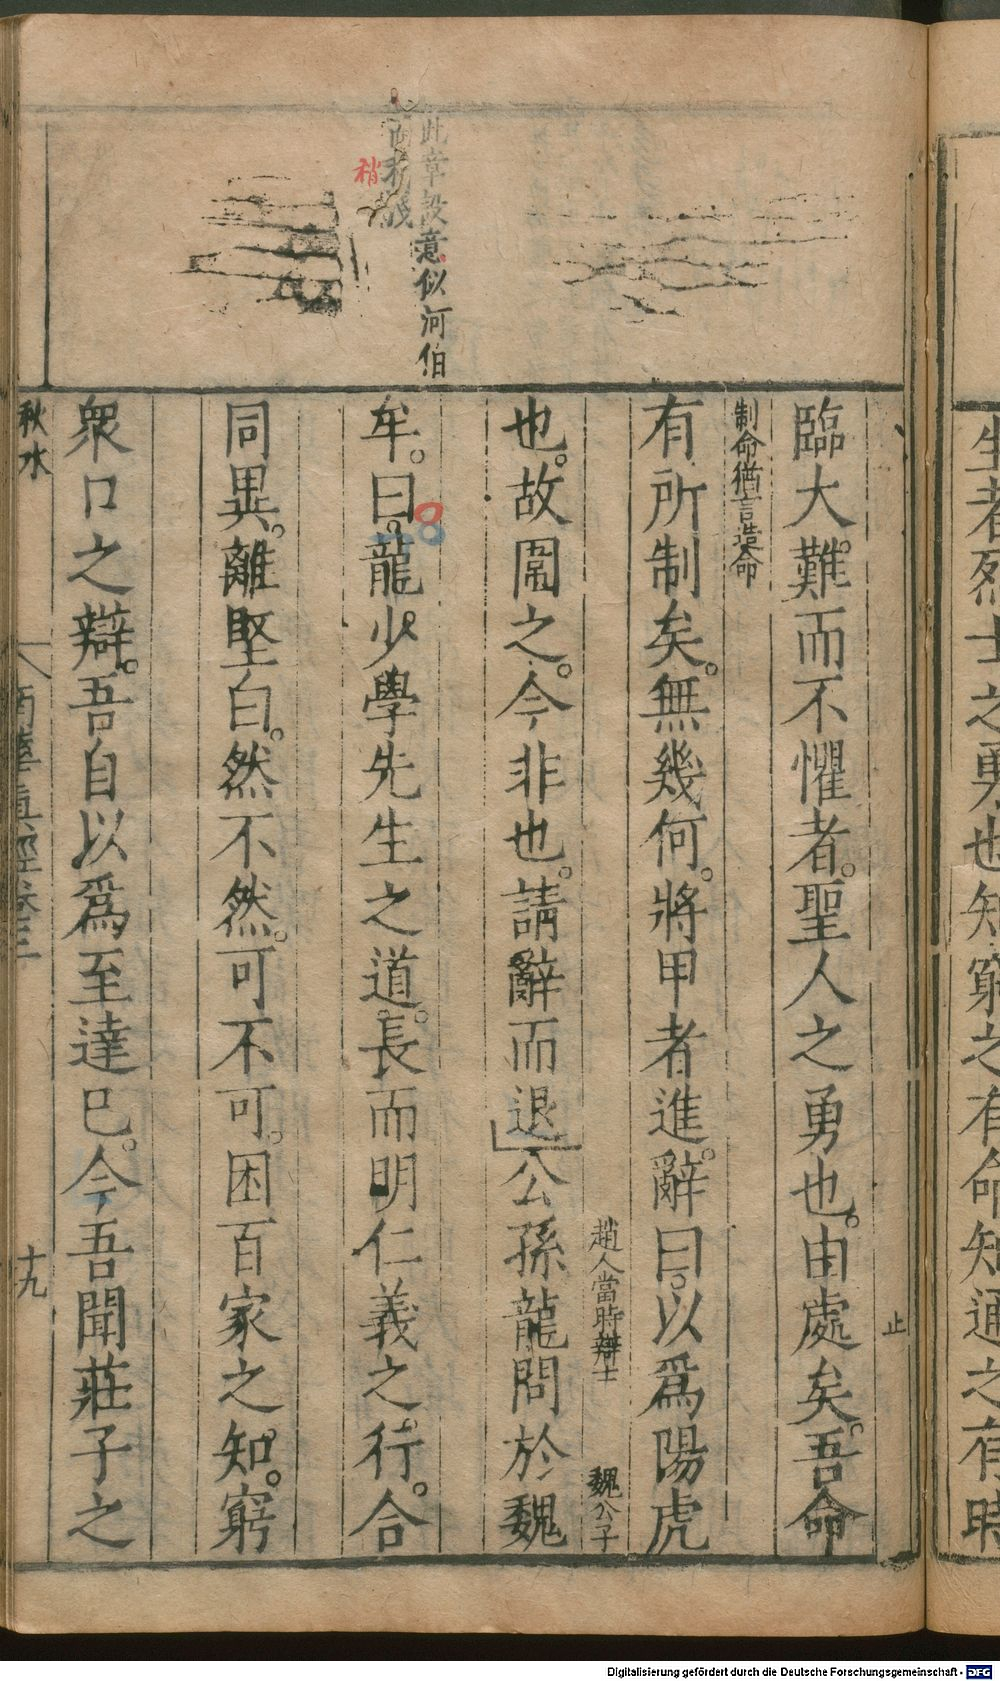 生者烈士之勇也知窮之有命知通之有時
止
臨大難而不懼者聖人之勇也由處矣吾命
制命猶言造命
有所制矣無幾何將甲者進辭曰以爲陽虎
趙人當時辯士　魏公子
也故圍之今非也請辭而退公孫龍問於魏
牟曰龍少學先生之道長而明仁義之行合
8
同異離堅白然不然可不可困百家之知窮
衆口之辯吾自以爲至達已今吾聞莊子之
此章設意似河伯
稍
秋水
南華真經卷三
十九
Digitalisierung gefördert durch die Deutsche Forschungsgemeinschaft - DFG